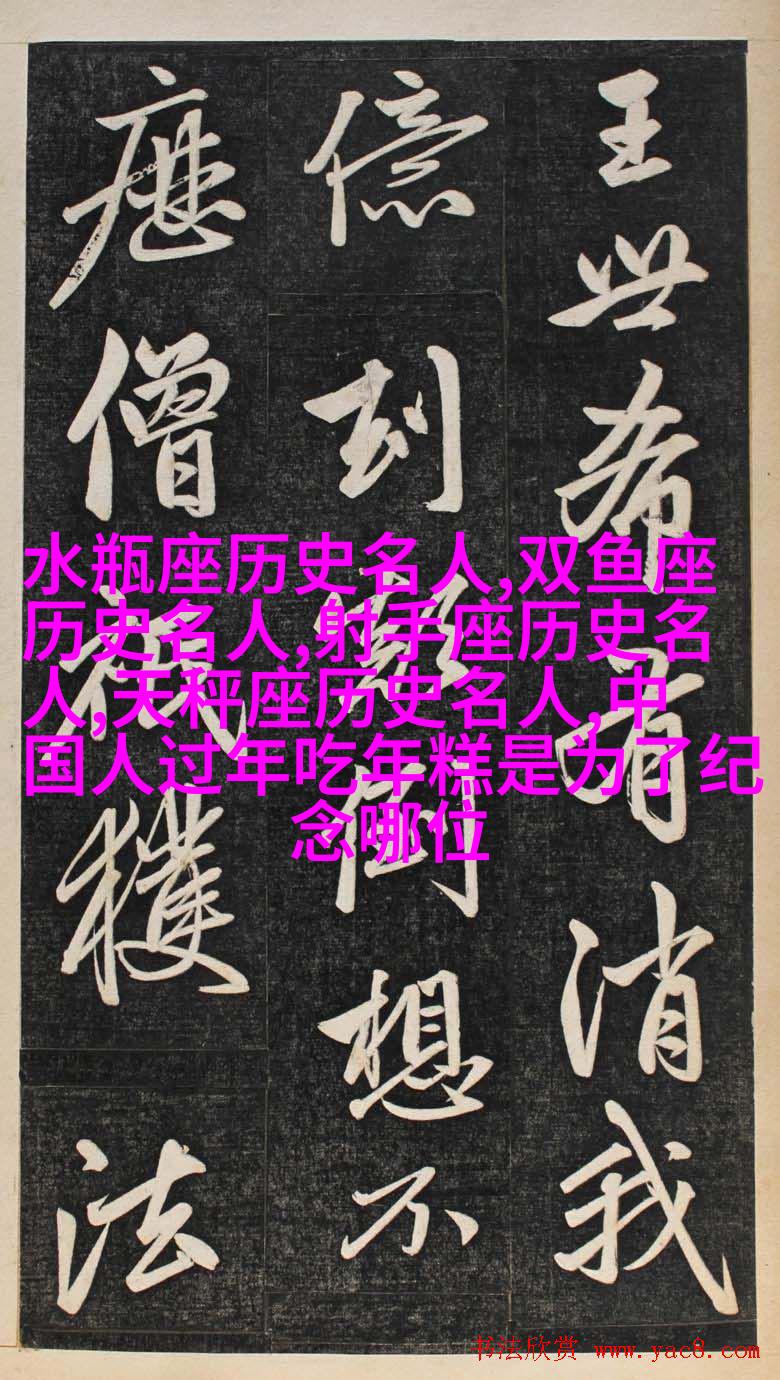 王世希有消我
億刦顛倒想不
歷僧祇穫法
水瓶座历史名人,双鱼座
历史名人,射手座历史名
人,天秤座历史名人,中
国人过年吃年糕是为了纪
念哪位
书法欣赏 www.yac8.com